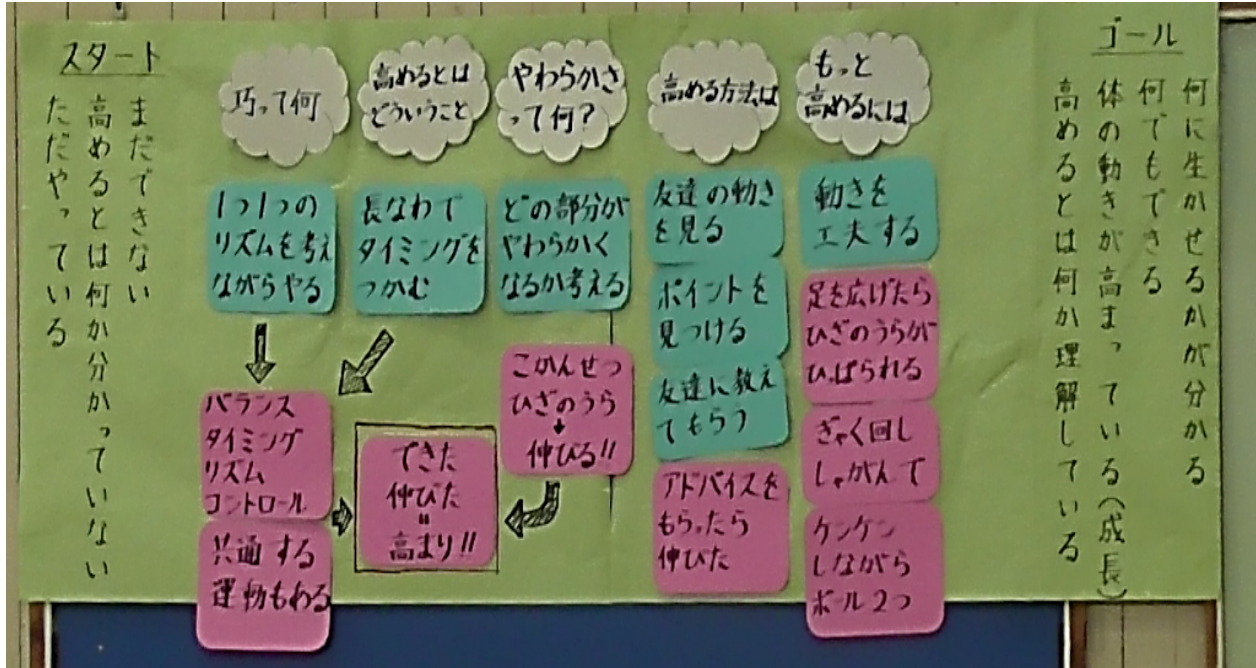 スタート
まだできない
高めるとは何か分かっていない
ただやっている
巧って何
1つ1つの
リズムを考え
ながらやる
バランス
タイミング
リズム
コントロール
共通する
運動もある
高めるとは
どういうこと
長なわで
タイミングを
つかむ
できた
伸びた
〃
高まり!!
やわらかさ
って何?
どの部分が
やわらかく
なるか考える
こかんせつ
ひざのうら
↓
伸びる!!
高める方法は
友達の動き
を見る
ポイントを
見つける
友達に教え
てもらう
アドバイスを
もらったら
伸びた
もっと
高めるには
動きを
工夫する
足を広げたら
ひざのうらが
ひっぱられる
ぎゃく回し
しゃがんで
ケンケン
しながら
ボール2つ
ゴール
何に生かせるかが分かる
何でもできる
体の動きが高まっている(成長)
高めるとは何か理解している